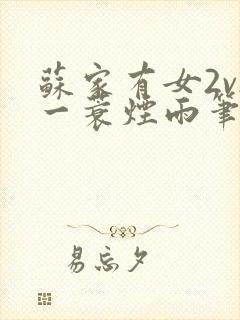 蘇家有女2v
一蓑煙雨筆
易忘夕